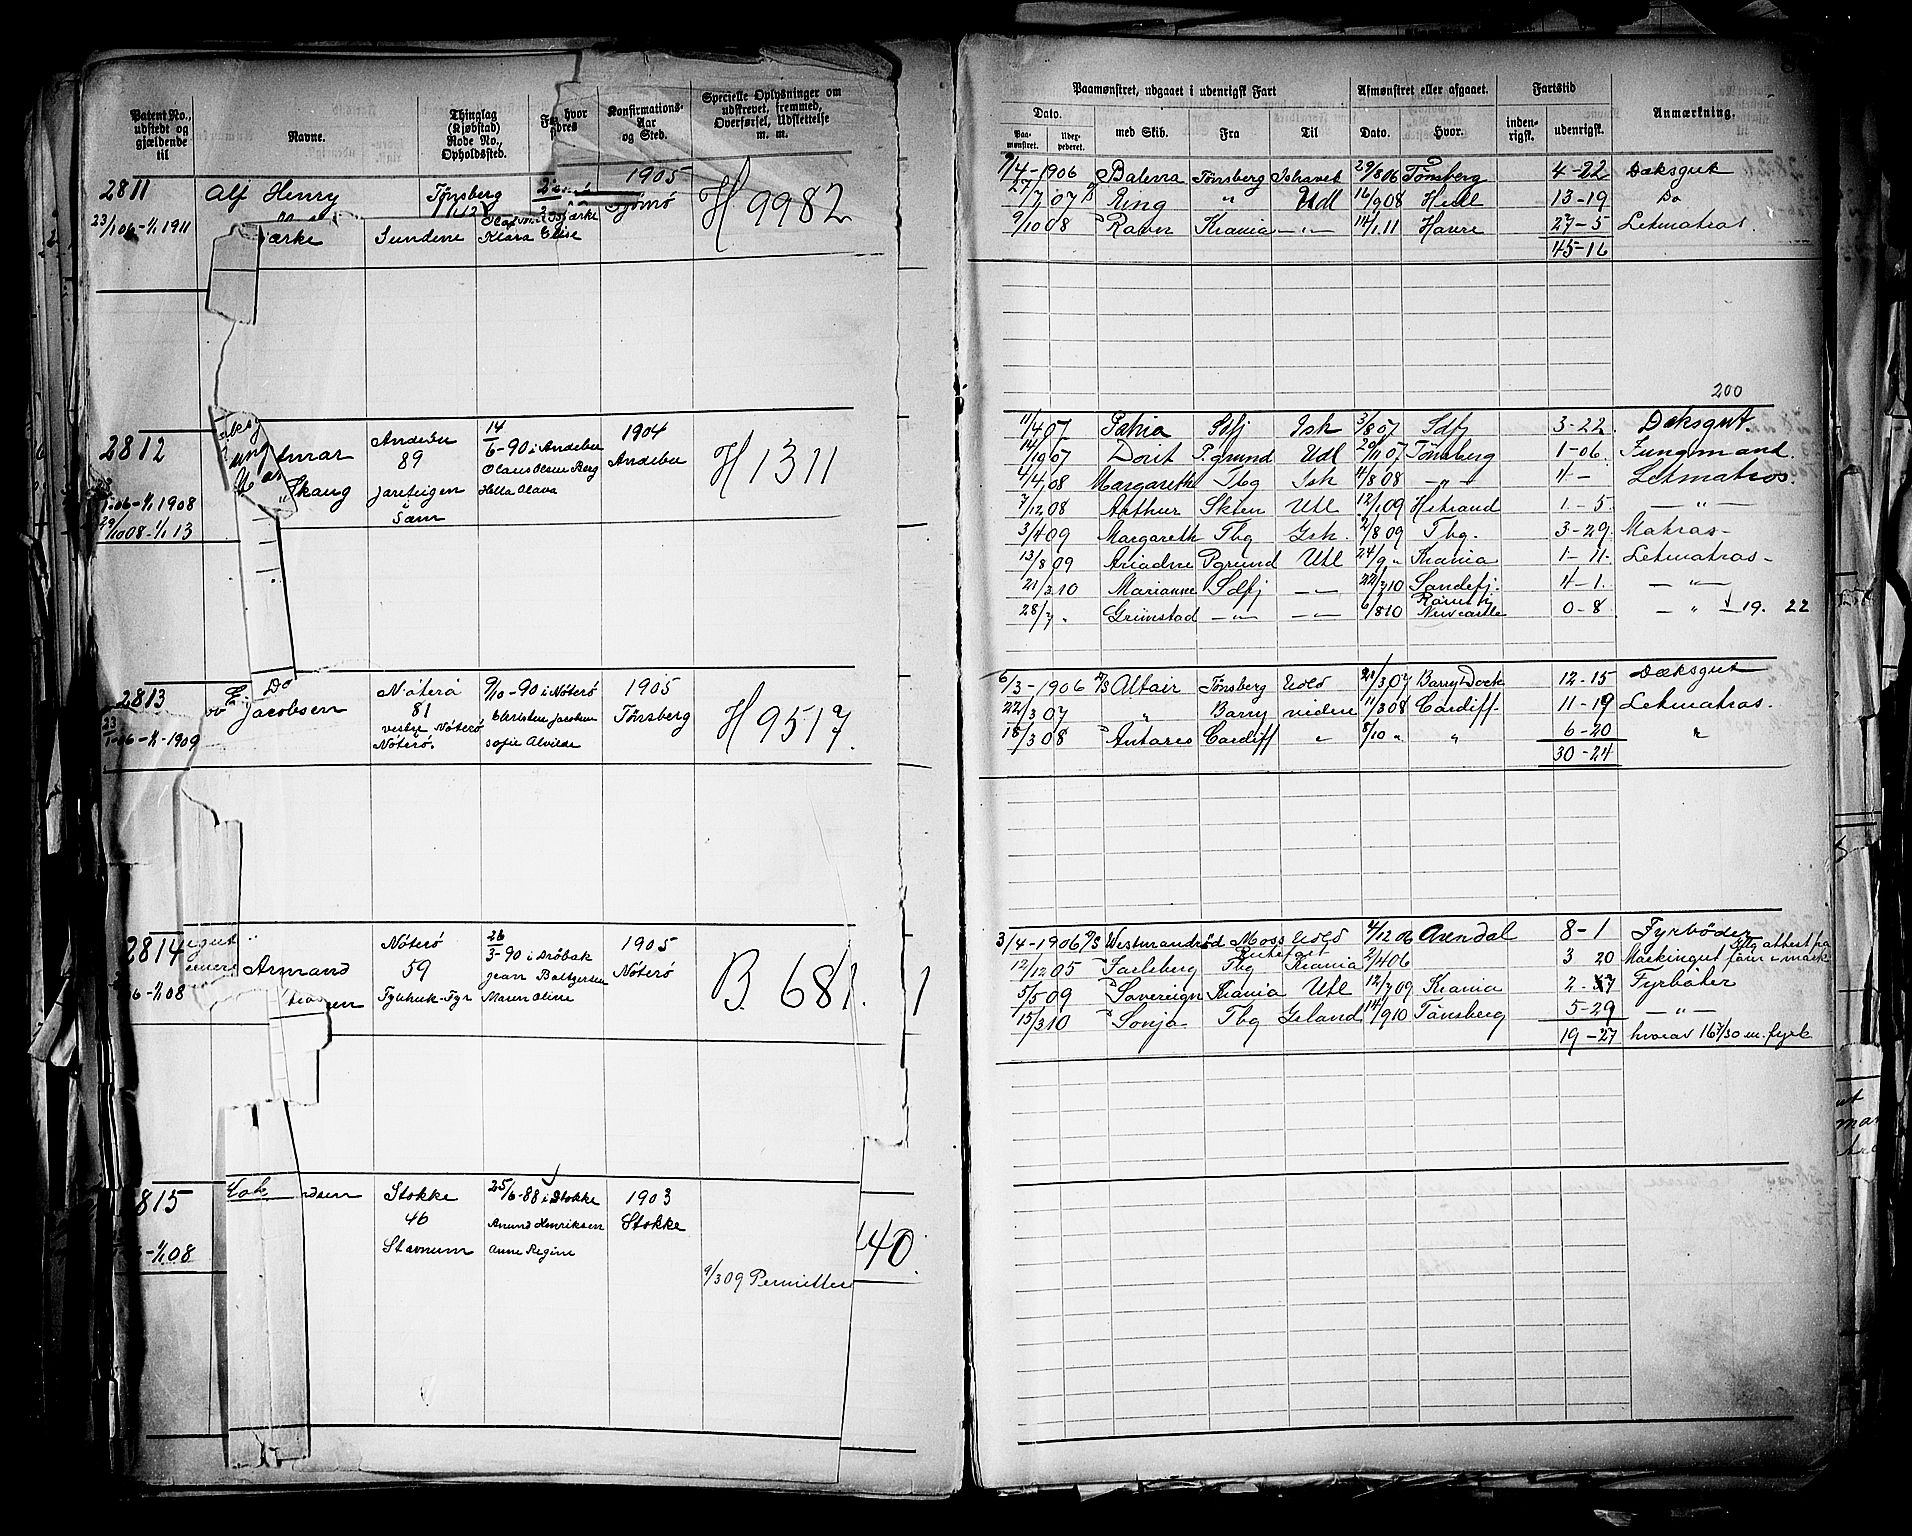 Patent No., udstedt og gjældende til
Navne.
Thinglag (Kjøbstad) Rode No., Opholdssted.
hvor
Konfirmations-Aar og Sted.
Specielle Oplysninger om udskrevet, fremmed, Overførsel, Udslettelse m. m.
2811
23/1 06 - 1/1 1911
Alf Henry
Bjærke
Tønsberg
Sundene
Klara Elise
1905
Tjømø
H 9982
2812
1-06-1/1 1908
29/10 08-1/1 13
Skaug
Andebu
89
Jareteigen
Sæm
14/6-90 i Andebu
Olaus Olsen Berg
Helle Olava
1904
Andebu
H 1311
2813
23/1-06-1/1-1909
Do
Jacobsen
Nøterø
81
vestre Nøterø
Nøterø.
9/10-90 i Nøterø
Christen Jacobsen
Sofie Alvilde
1905
Tønsberg
H 9517
2814
06-1/1 08
Armand
Nøterø
59
Tyvhuk-Fyr
26/3-90 i Drøbak
Jean Baltzersen
Maren Oline
1905
Nøterø
B. 681.
1
815
-1/1 08
dsen
Stokke
46
Stavnum
25/6-88 i Stokke
Anund Henriksen
Anne Regine
1903
Stokke
9/3 09 Permitter
40
Paamønstret, udgaaet i udenrigsk Fart
Afmønstret eller afgaaet.
Fartstid
Anmærkning.
Dato.
Paamønstret.
Uderpederet.
med Skib.
Fra
Til
Dato.
Hvor.
indenrigsk.
udenrigsk.
9/4-1906 Balena Tønsberg Ishavet 29/8 06 Tønsberg 4-22 Dæksgut
27/7 07 D/S Ring " Udl 16/9 08 Hull 13-19 Do
9/10 08 " Ravn Krania -"- 14/1 11 Havre 27-5 Letmatros.
45-16
200
11/4 07 Sdfj Ish 3/8 07 Sdfj 3-22 Dæksgut.
14/10 07 Dorit P.grund Udl 20/11 07 Tønsberg 1-06. Jungmand.
4/4 08 Margareth Tbg Ish 4/8 08 -"- 4- Letmatros.
7/12 08 Arthur Skien Utl 12/1 09 Hstrand 1-5 -"-
3/4 09 Margareth Tbg Ish. 2/8 09 Tbg. 3-29 Matros-
13/8 09 Ariadne Pgrund Utl 24/9 " Krania 1-11. Letmatros-
21/3 10 Marianne Sdfj -"- 22/7 10 Sandefj. 4-1. -"-
28/7 " Grimstad -"- -"- 6/8 10 Rømt i Newcastle 0-8 -"- 19. 22
6/3-1906 D/S Altair Tønsberg Udld 21/3 07 Barry Dock 12-15 Dæksgut
22/3 07 " Barry videre 11/3 08 Cardiff. 11-19 Letmatros.
18/3 08 " Antares Cardiff " 8/10 " " 6-20 "
30-24
3/4-1906 D/S Moss Udld 4/12 06 Arendal 8-1 Fyrbøder
12/12 05 " Jarlsberg Tbg Krania 2/4 06 3 20 Maskingut
5/5 09 " Sovereign Krania Utl 12/7 09 Krania 2-7 Fyrbøter
15/3 10 " Sonja Tbg Island 14/9 10 Tønsberg 5-29 -"-
19-27 hvorav 16 7/30 m. fyrb